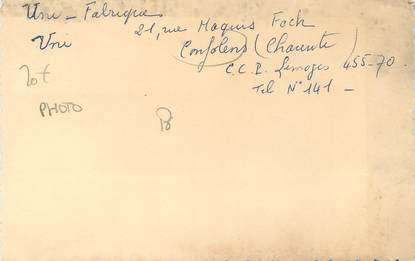 Uni - Fabrique
21, rue Maquis Foch
Uni
Confolens (Charente)
C.C.P. Limoges 455-70.
Tel N° 141 -
20f
PHOTO